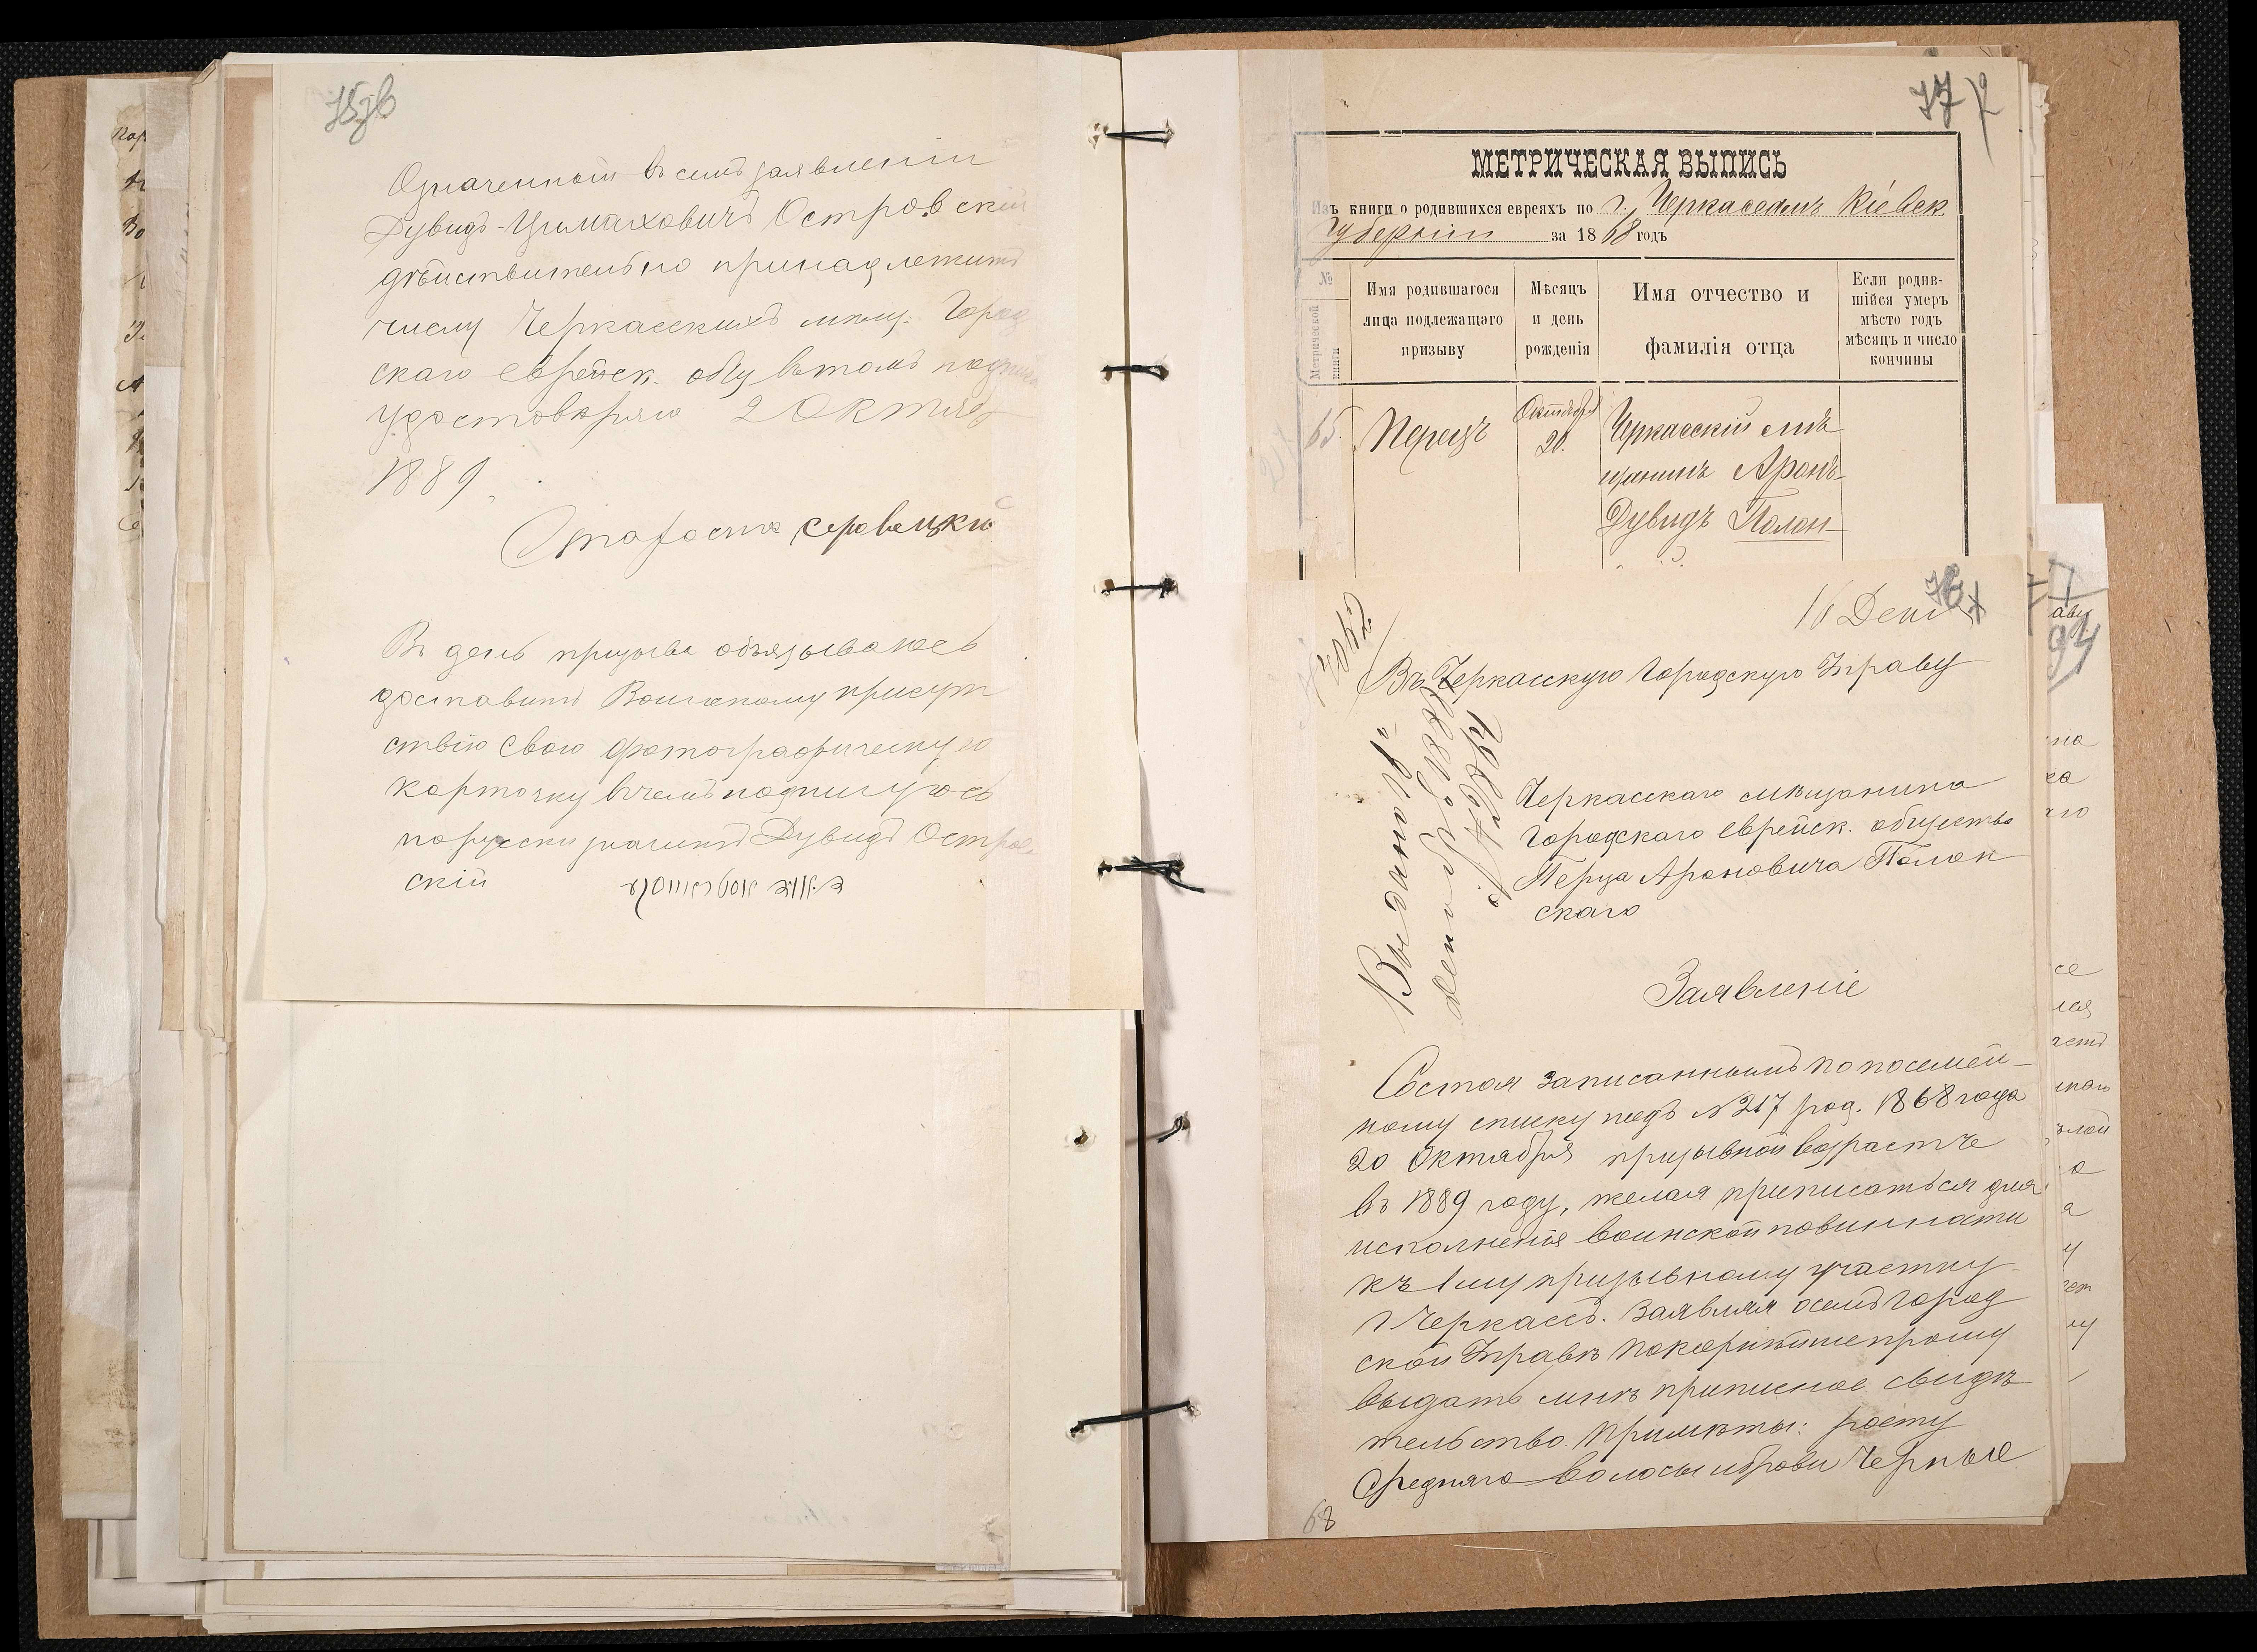 Означенный въ семъ заявленіи
Дувидъ-Цимаховичъ Островскій
дѣйствительно принадлежитъ
числу Черкасскихъ мѣщ. Город
скаго еврейск. общ въ томъ
удостовѣряю 2 Октяб
1889
Староста
Въ день призыва обязываюсь
доставить Воинскому присут
ствію свою фотографическую
карточку въ чемъ подпишусь
порусски значитъ Дувидъ Остров
скій
77
МЕТРИЧЕСКАЯ ВЫПИСЬ
Изъ книги о родившихся евреяхъ по г. Черкассамъ Кіевск.
Губерніи за 1868 годъ
№ Метрической книги
Имя родившагося лица подлежащаго призыву
Мѣсяцъ и день рожденія
Имя отчество и фамилія отца
Если родив-шійся умеръ мѣсто годъ мѣсяцъ и число кончины
65. Перецъ Октября 20. Черкасскій мѣ
щанинъ Аронъ-
Дувидъ Полон-
Въ Черкасскую Городскую Управу
Черкасскаго мѣщанина
Городскаго еврейск. общества
Перца Ароновича Полон
скаго
Заявленіе
Состоя записаннымъ по посемей-
ному списку подъ №217 род. 1868 года
20 Октября призывной возрастъ
въ 1889 году, желая приписаться для
исполненія воинской повинности
къ 1му призывному участку
г Черкассъ. Заявляя о семъ Город
ской Управѣ покорнѣйше прошу
выдать мнѣ приписное свидѣ
тельство. Примѣты: росту
средняго волосы и брови черные
68
94